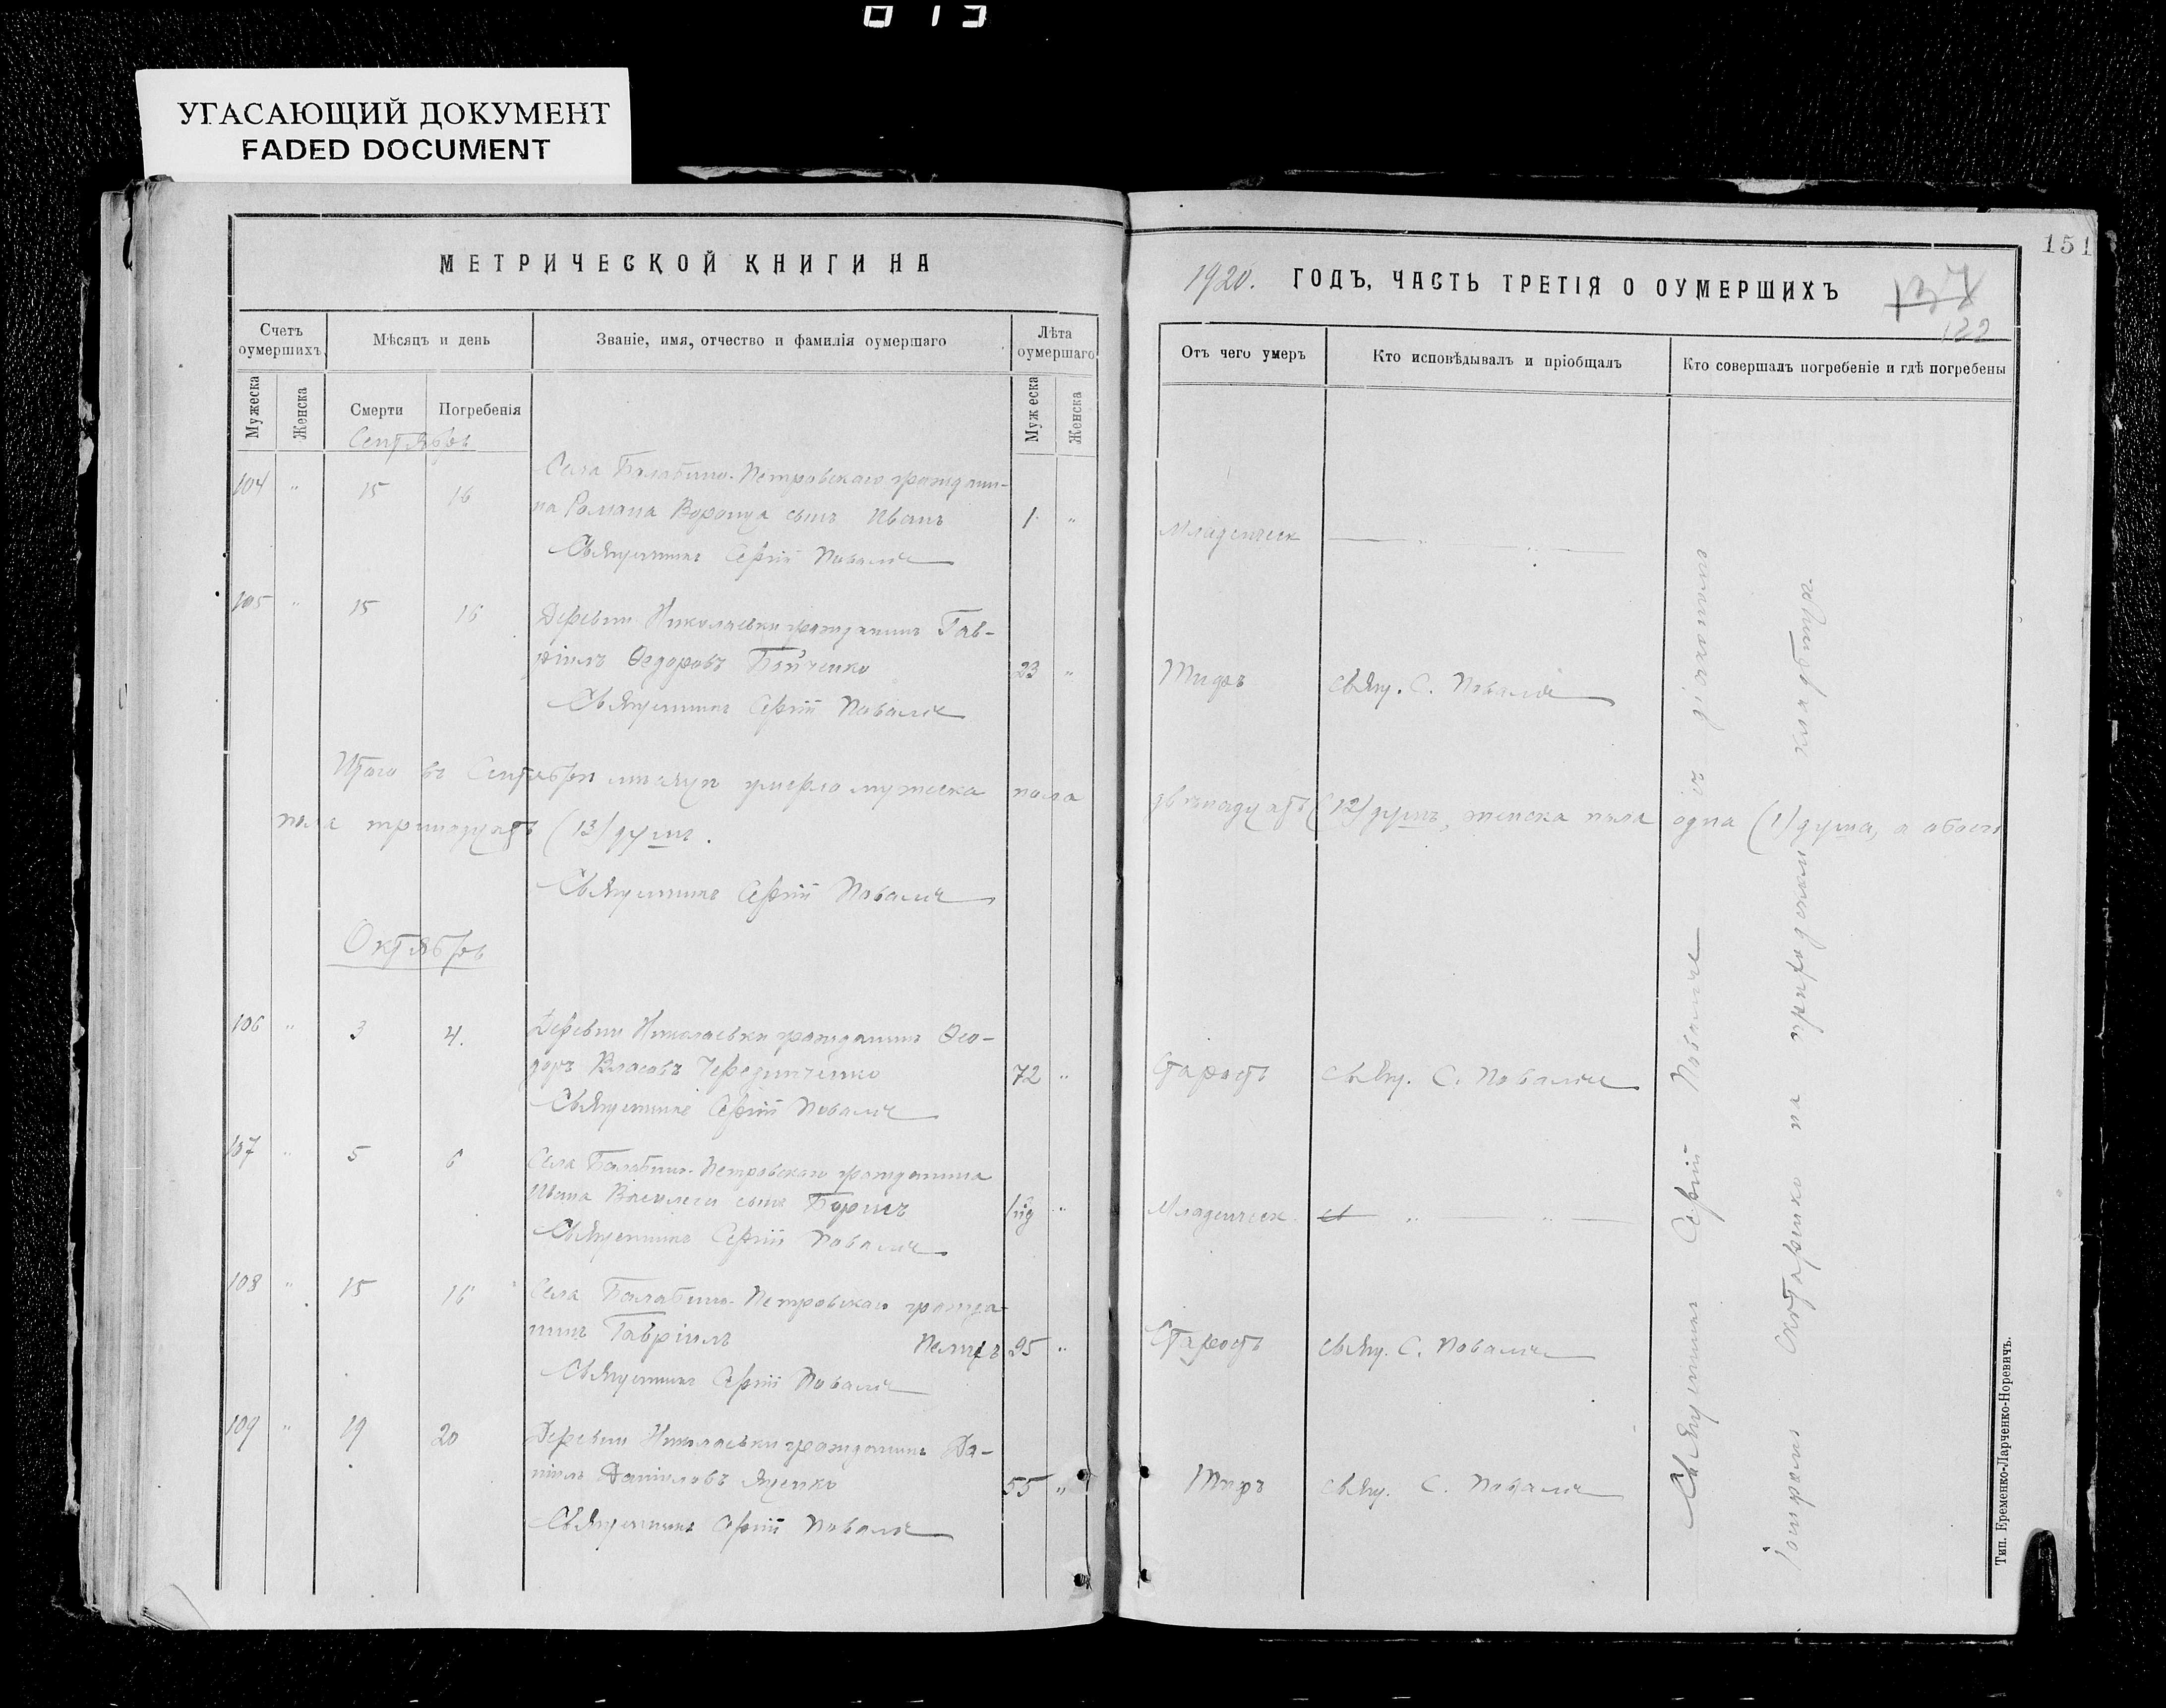 УГАСАЮЩИЙ ДОКУМЕНТ
FADED DOCUMENT
МЕТРИЧЕСКОЙ КНИГИ НА
Счетъ оумершихъ
Мѣсяцъ и день
Званіе, имя, отчество и фамилія оумершаго
Лѣта оумершаго
Мужеска
Женска
Смерти
Погребенія
Мужеска
Женска
Сентябрь
104 " 15 16 Села Балабино-Петровскаго граждани-
на Романа Воронца сынъ Иванъ 1 "
Священникъ Сергій Поваляе
105 " 15 16 Деревни Николаевки гражданинъ Гав-
ріилъ Ѳедоровъ Бойченко 23 "
Священникъ Сергій Поваляе
Итого въ Сентябрѣ мѣсяцѣ умерло мужеска пола
пола тринадцать (13) душъ.
Священникъ Сергій Поваляе
Октябрь
106 " 3 4. Деревни Николаевки гражданинъ Ѳео-
доръ Власовъ Чередниченко 72 "
Священникъ Сергій Поваляе
107 " 5 6 Села Балабино-Петровскаго гражданина
Ивана сынъ Борисъ "
Священникъ Сергій Поваляе
108 " 15 16 Села Балабино-Петровскаго гражда-
нинъ Гавріилъ 95 "
Священникъ Сергій Поваляе
109 " 19 20 Деревни Николаевки гражданинъ Да-
ніилъ Даніиловъ Яценко 55 "
Священникъ Сергій Поваляе
151
1920. ГОДЪ, ЧАСТЬ ТРЕТІЯ О ОУМЕРШИХЪ
137
122
Отъ чего умеръ
Кто исповѣдывалъ и пріобщалъ
Кто совершалъ погребеніе и гдѣ погребены
Младенческ
Тифъ свящ. С. Поваляе
двѣнадцать (12) душъ, женска пола одна (1) душа, а обоего
Старость свящ. С. Поваляе
Младенческ
Старость свящ. С. Поваляе
Тифъ свящ. С. Поваляе
Священникъ Сергій Поваляе съ діакономъ
на приходскомъ кладбищѣ.
Тип. Еременко-Ларченко-Норевичъ.